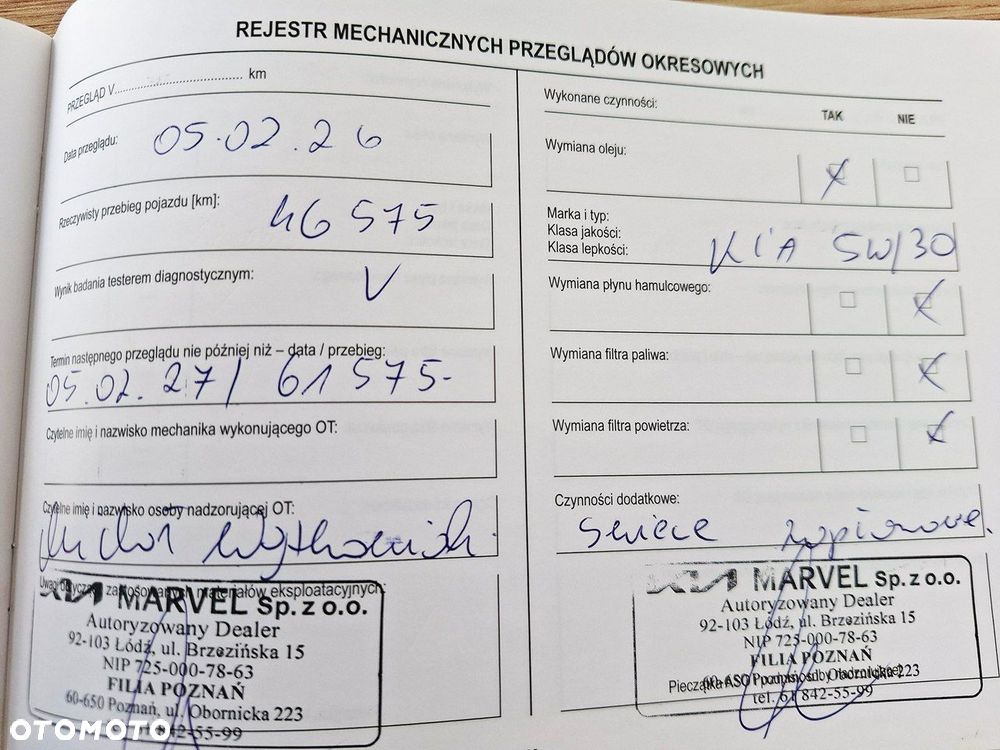 REJESTR MECHANICZNYCH PRZEGLĄDÓW OKRESOWYCH
PRZEGLĄD V........................................ km
Data przeglądu: 05.02.26
Rzeczywisty przebieg pojazdu [km]: 46 575
Wynik badania testerem diagnostycznym: V
Termin następnego przeglądu nie później niż – data / przebieg:
05.02.27/ 61 575-
Czytelne imię i nazwisko mechanika wykonującego OT:
Czytelne imię i nazwisko osoby nadzorującej OT:
Uwagi dotyczące zastosowanych materiałów eksploatacyjnych:
KIA MARVEL Sp. z o.o.
Autoryzowany Dealer
92-103 Łódź, ul. Brzezińska 15
NIP 725-000-78-63
FILIA POZNAŃ
60-650 Poznań, ul. Obornicka 223
842-55-99
Wykonane czynności:
TAK NIE
Wymiana oleju:
Marka i typ:
Klasa jakości:
Klasa lepkości:
KIA 5W/30
Wymiana płynu hamulcowego:
Wymiana filtra paliwa:
Wymiana filtra powietrza:
Czynności dodatkowe:
Świece zapłonowe.
KIA MARVEL Sp. z o.o.
Autoryzowany Dealer
92-103 Łódź, ul. Brzezińska 15
NIP 725-000-78-63
FILIA POZNAŃ
60-650 Poznań, ul. Obornicka 223
Pieczątka ASO i podpis osoby nadzorującej
tel. 61 842-55-99
OTOMOTO